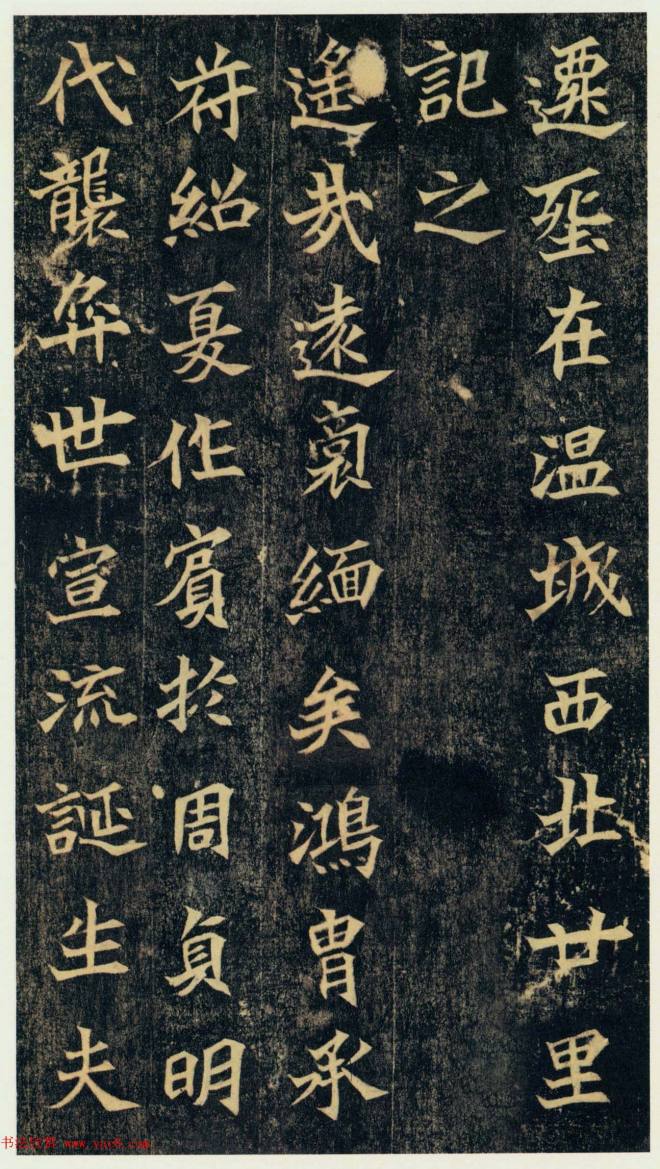 遷𦵏在温城西北廿里
記之
遥哉遠裔緬矣鴻冑承
苻紹夏作賓於周貞明
代襲弈世宣流誕生夫
www.yac8.com